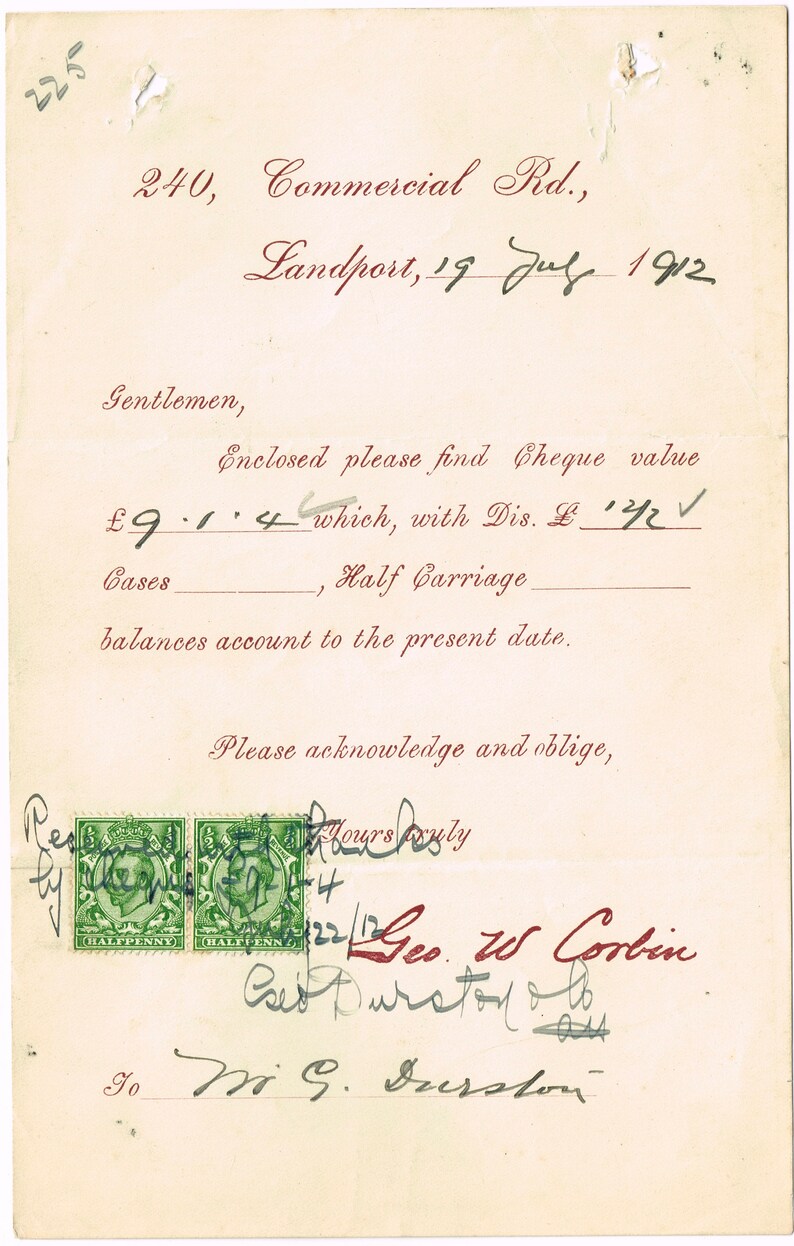 225
240, Commercial Rd.,
Landport, 19 July 1912
Gentlemen,
Enclosed please find Cheque value
£ 9 . 1 . 4 which, with Dis. £ 12/2
Cases , Half Carriage
balances account to the present date.
Please acknowledge and oblige,
Yours truly
Received with thanks
by cheque £9-1-4
22/12
HALFPENNY HALFPENNY
Geo. W Corbin
Geo Durston & Co
To Mr G. Durston